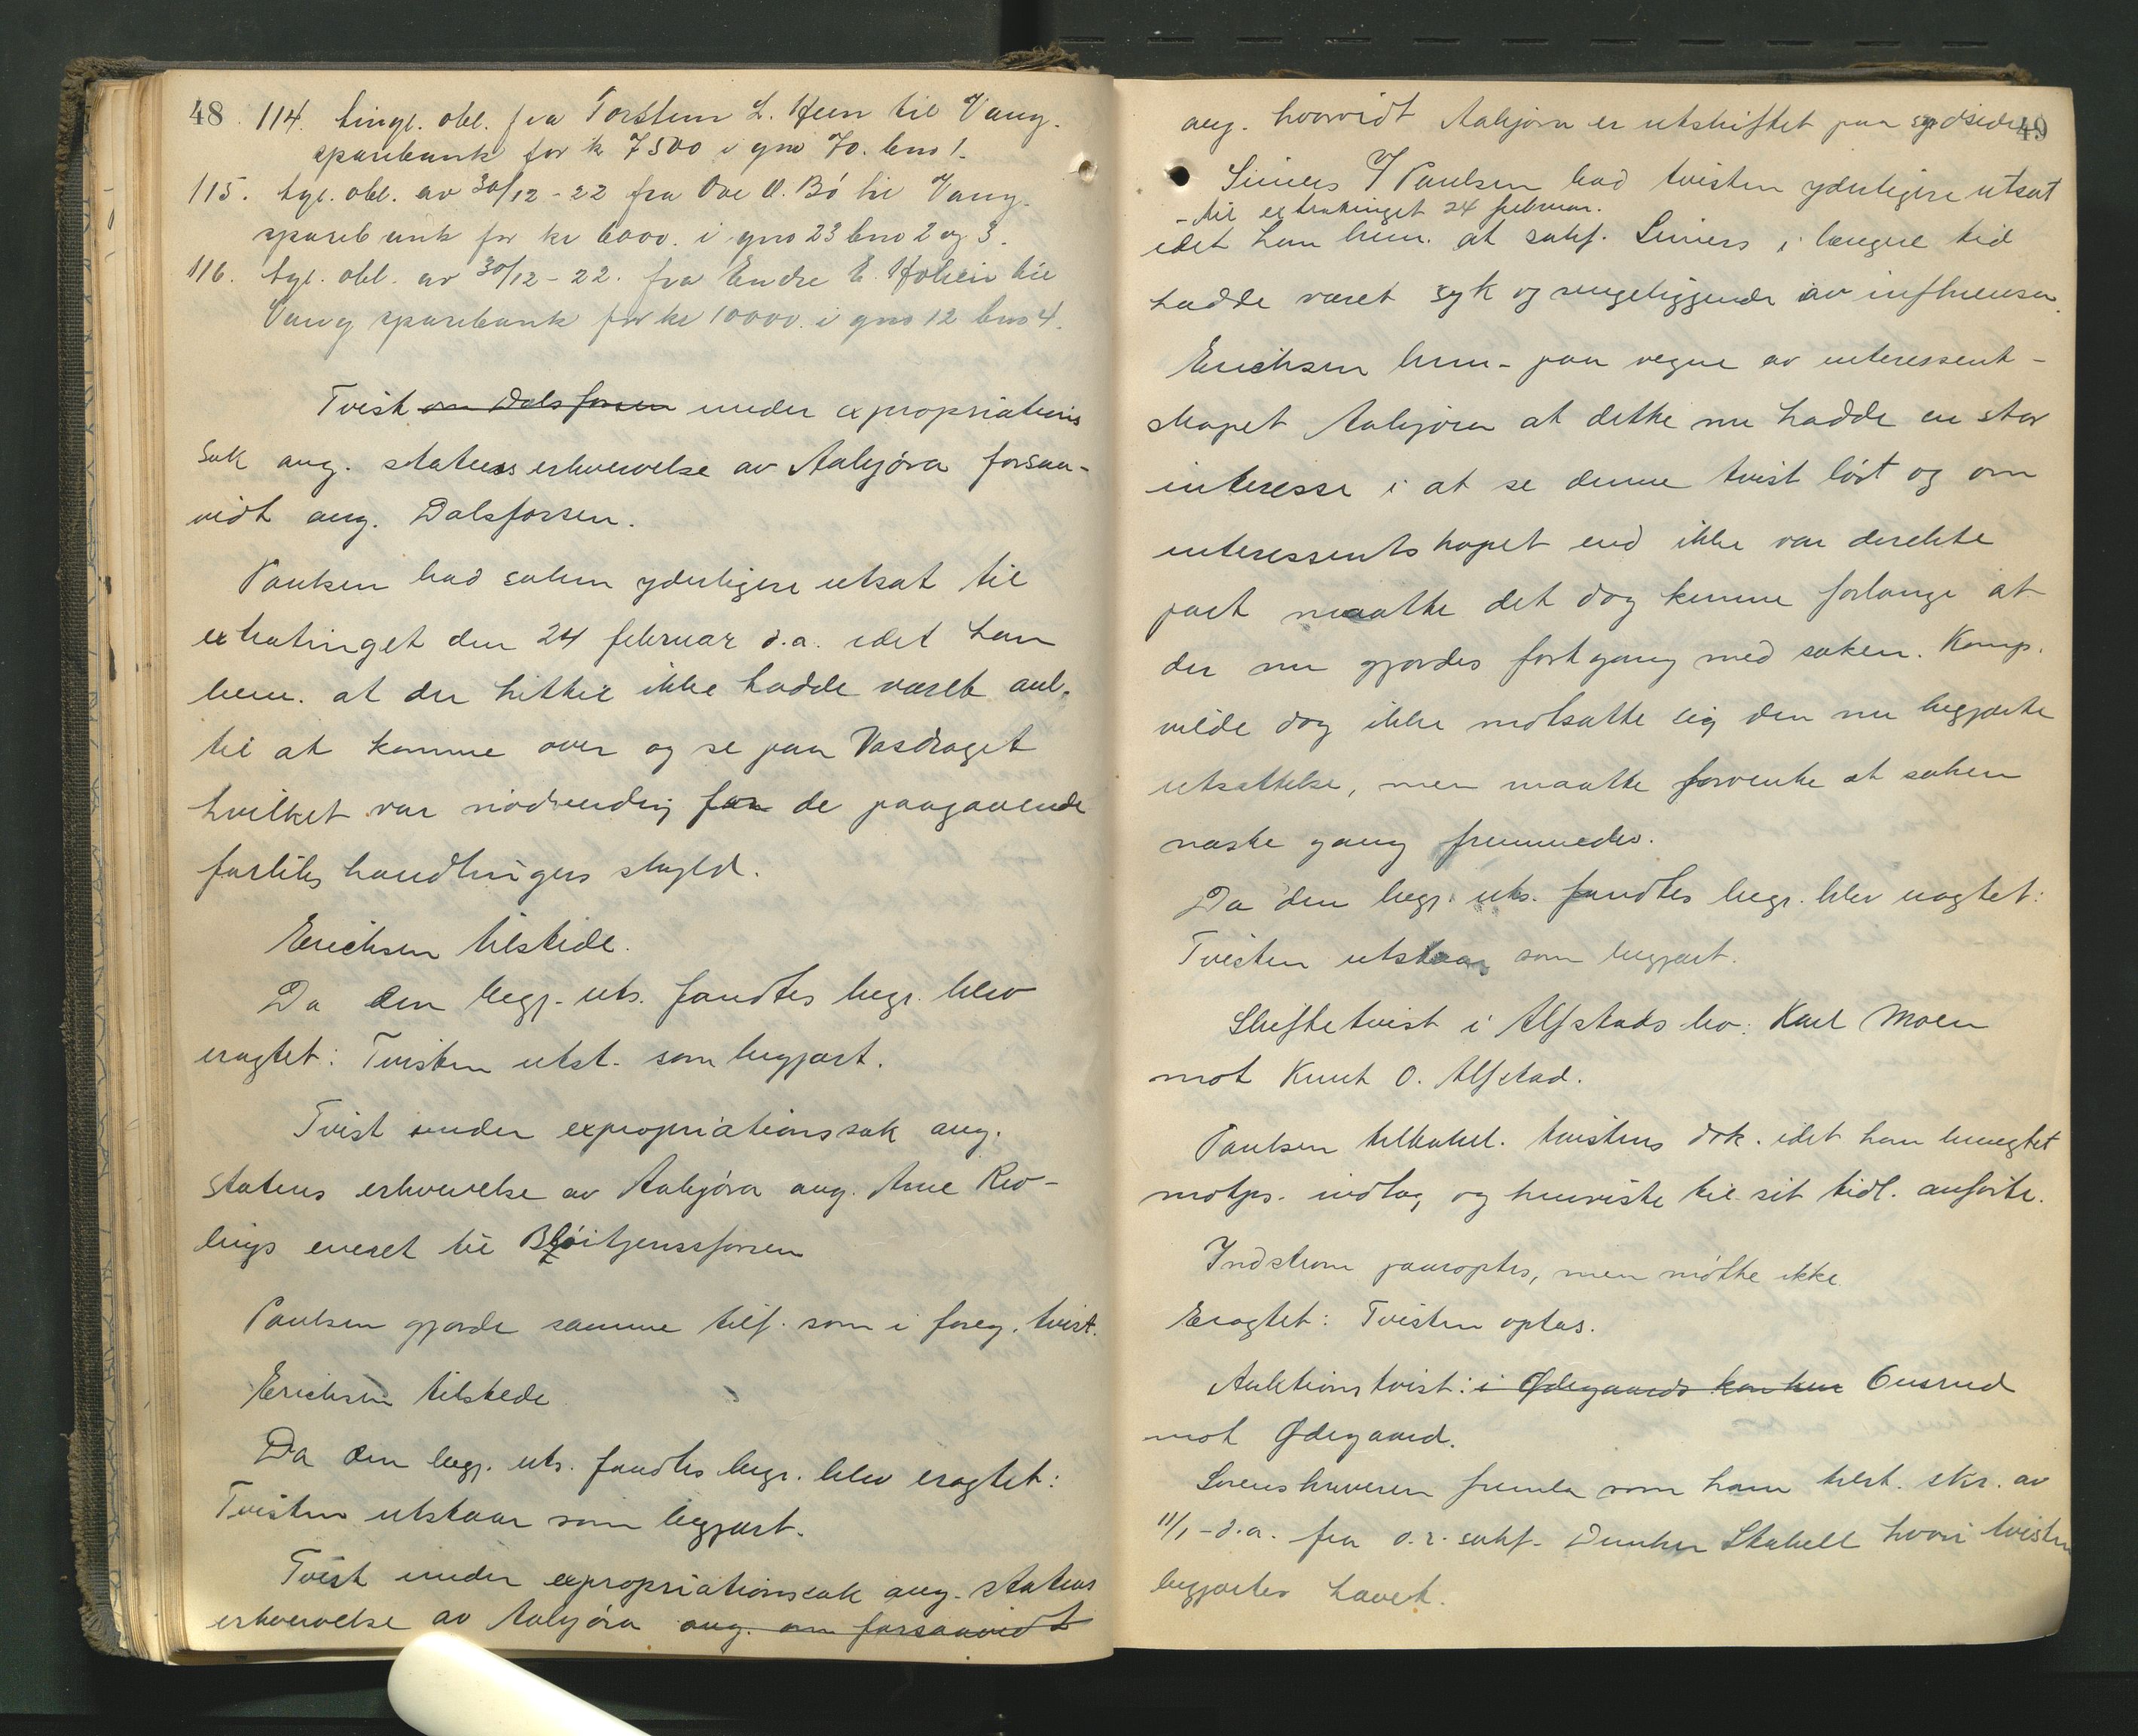 48 114. tingl. obl. fra Torstein L. Kvien til Vang.
sparebank for kr 7500 i gno 70. bno 1.
115. tgl. obl. av 30/12-22 fra Ove O. Bö til Vang.
sparebank for kr 6000. i gno 23 bno 2 og 3.
116. tgl. obl. av 30/12-22. fra Endre E. Holien til
Vang sparebank for kr 10000. i gno 12 bno 4.
Tvist om Dalsfossen under expropriations
sak ang. statens erhvervelse av Aabjöra forsaa-
vidt ang. Dalsfossen.
Paulsen bad saken yderligere utsat til
extratinget den 24 februar d.a. idet han
bem. at der hittil ikke hadde været anl.
til at komme over og se paa Vasdraget
hvilket var nödvendig for de paagaaende
forliks handlingers skyld.
Erichsen tilstede.
Da den begj. uts. fandtes begr. blev
eragtet: Tvisten utst. som begjært.
Tvist under expropriationssak ang.
statens erhvervelse av Aabjöra ang. Arne
eneret til
Paulsen gjorde samme tilf. som i foreg. tvist.
Erichsen tilstede
Da den begj. uts. fandtes begr. blev eragtet:
Tvisten utstaar som begjært.
Tvist under expropriationssak ang. statens
erhvervelse av Aabjöra ang. om forsaavidt
ang. hvorvidt Aabjöra er utskiftet paa sydsiden 49
Siniers v/ Paulsen bad tvisten yderligere utsat
- til extratinget 24 februar.
idet han bem. at sakf. Siniers i længre tid
hadde været syk og sengeliggende av influensa.
Erichsen bem. paa vegne av interessent-
skapet Aabjöra at dette nu hadde en stor
interesse i at se denne tvist löst og om
interessentskapet end ikke var direkte
part maatte det dog kunne forlange at
der nu gjordes fortgang med saken. Komp.
vilde dog ikke motsætte sig den nu begjærte
utsættelse, men maatte forvente at saken
næste gang fremmedes.
Da den begj. uts. fandtes begr. blev eragtet:
Tvisten utstaar som begjært.
Skiftetvist i Alfstads bo: Karl Moen
mot Knut O. Alfstad.
Paulsen tilbakel. tvistens dok. idet han benegtet
motps. indlæg, og henviste til sit tidl. anförte.
Indstrom paaroptes, men mötte ikke.
Eragtet: Tvisten optas.
Auktionstvist: i Ødegaards konkurs
mot Ødegaard.
Sorenskriveren fremla som ham tilst. skr. av
11/1-d.a. fra o.r. sakf. Dunker Stabell hvori tvisten
begjærtes hævet.